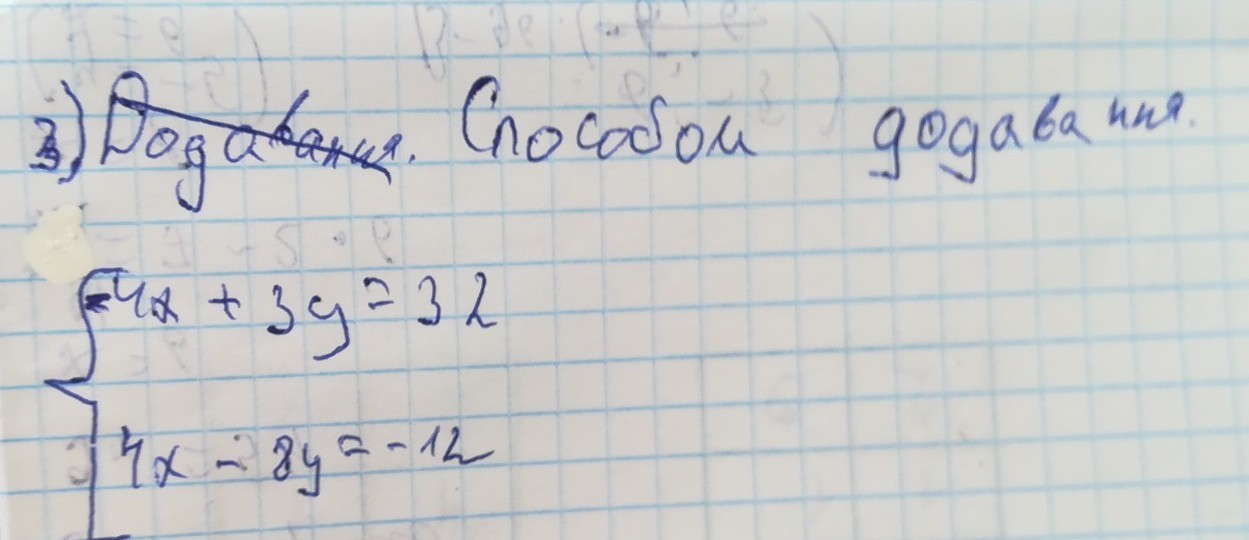 3) Додавання. Способом додавання.
-4x + 3y = 32
4x - 8y = -12